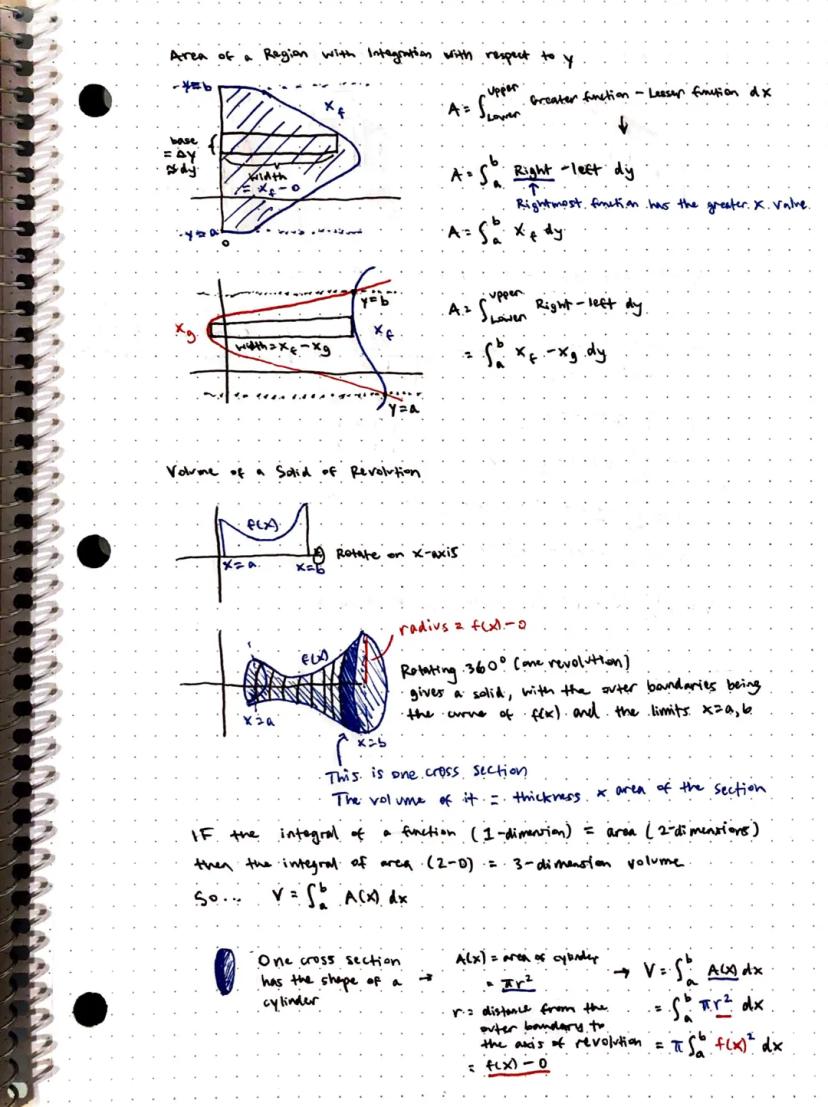 Area of a Region with Integration with respect to y
y=b
x_f
base
= Δy
≈ dy
width
= x_f - 0
y=a
0
A = ∫_Lower^upper Greater function - Lesser function dx
↓
A = ∫_a^b Right - left dy
↑
Rightmost function has the greater x value.
A = ∫_a^b x_f dy
y=b
x_g
x_f
width = x_f - x_g
y=a
A = ∫_Lower^upper Right - left dy
= ∫_a^b x_f - x_g dy
Volume of a Solid of Revolution
f(x)
x=a
x=b
Rotate on x-axis
radius = f(x) - 0
f(x)
x=a
x=b
Rotating 360° (one revolution)
gives a solid, with the outer boundaries being
the curve of f(x) and the limits x=a,b
This is one cross section
The volume of it = thickness × area of the section
IF the integral of a function (1-dimension) = area (2-dimensions)
then the integral of area (2-D) = 3-dimension volume
So... V = ∫_a^b A(x) dx
One cross section
has the shape of a →
cylinder
A(x) = area of cylinder
= πr²
r = distance from the
outer boundary to
the axis of revolution
= f(x) - 0
→ V = ∫_a^b A(x) dx
= ∫_a^b πr² dx
= π∫_a^b f(x)² dx